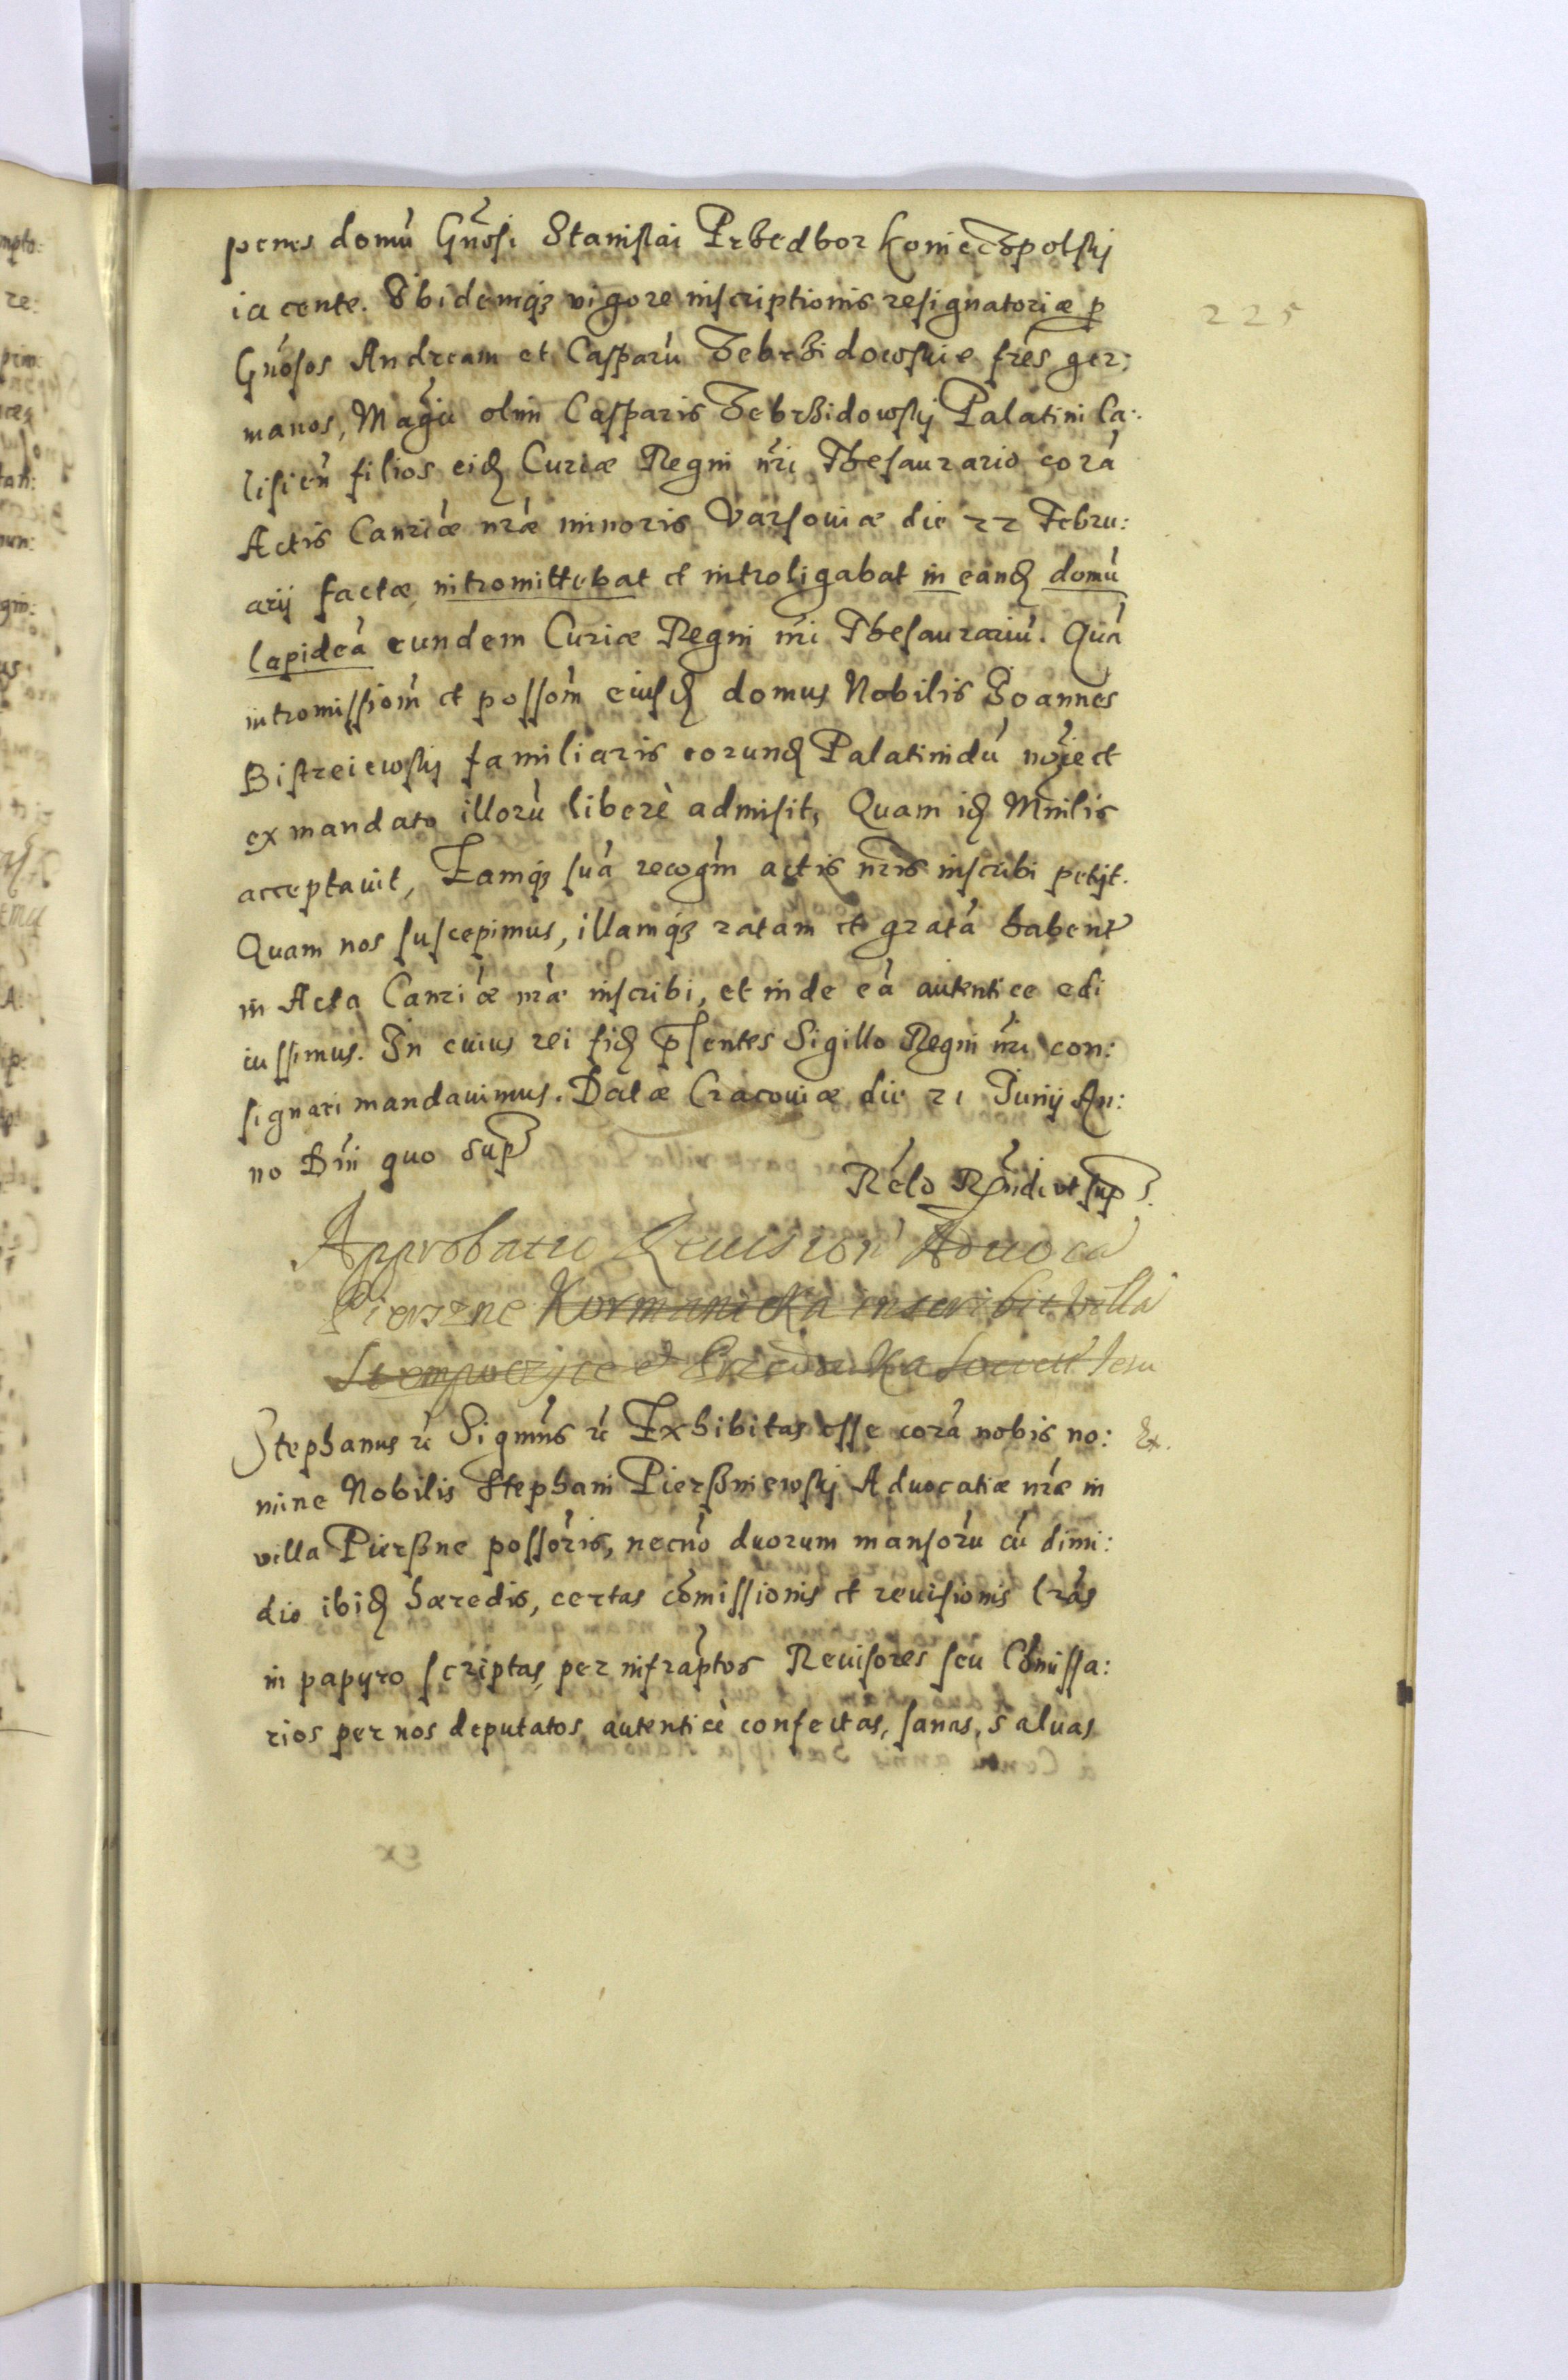 penes domú Gnósi Stanislai Przedbor Koniecżpolskij
iacente. Ibidemq3 vigore inscriptionis resignatoriæ p
225
Gnósos Andream et Casparú Zebrzidowskie frés ger:
manos, Magci olim Casparis Zebrzidowskij Palatini Ca:
lisień filios eid Curiæ Regni nri Thesaurario corá
Actis Canriæ nræ minoris Varsouiæ die 22 Febru:
arij factæ intromittebat et introligabat in eand domú
lapideá eundem Curiæ Regni nri Thesaurariú. Quá
intromissiom et possom eiusd domus Nobilis Joannes
Bistreiewskij familiaris eorund Palatinidú noie et
ex mandato illorú liberè admisit, Quam id Mnilis
acceptauit, Eamq3 suá recogm actis nris inscribi petijt.
Quam nos suscepimus, illamq3 ratam et gratá habent
in Acta Canriæ nræ inscribi, et inde eá autentice edi
iussimus. In cuius rei fid pntes Sigillo Regni nri con:
signari mandauimus. Datæ Cracouiæ die 21 Junij An:
no Dni quo sup
Relo Rndi ut sup
Approbatio Reuision Aduoca
Pierszne Kormanicka inscribit villa
et
Stephanus rc Signms rc Exhibitas esse corá nobis no: Ex.
mine Nobilis Stephani Pierszniewskij Aduocatiæ nræ in
villa Pierszne possoris, necnó duorum mansorú cú dimi:
dio ibid hæredis, certas comissionis et reuisionis lrás
in papyro scriptas, per infraptos Reuisores seu Comissa:
rios per nos deputatos, autenticè confectas, sanas, saluas
ex